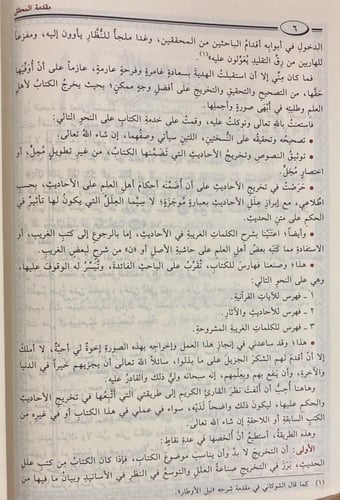 ٦
مقدمة المحقق
الدخول في أبوابه أقدامُ الباحثين من المحققين، وغدا ملجأ للنُّظَّار يأوون إليه، ومفزعاً
للهاربين من رِقِّ التقليد يُعَوِّلون عليه(١).
فما كان مِنِّي إلا أن استقبلتُ الهديةَ بسعادةٍ غامرةٍ وفرحةٍ عارمةٍ، عازماً على أن أُوَفِّيَها
حَقَّها، من التصحيح والتحقيق والتخريج على أفضل وجهٍ ممكنٍ؛ بحيث يخرجُ الكتابُ لأهلِ
العلم وطلبتِه في أَبْهَى صورةٍ وأجملِها.
فاستعنتُ بالله تعالى وتوكلتُ عليه، وقمتُ على خدمةِ الكتاب على النحو التالي:
• تصحيحُه وتحقيقُه على النُّسختَينِ، اللتينِ سيأتي وصفُهما، إن شاء الله تعالى.
• توثيقُ النصوصِ وتخريجُ الأحاديثِ التي تَضمَّنها الكتابُ، من غيرِ تطويلٍ مُمِلٍّ، أو
اختصارٍ مُخِلٍّ.
• حَرَصْتُ في تخريجِ الأحاديثِ على أن أُضَمِّنَه أحكامَ أهلِ العلمِ على الأحاديثِ، بحسب
اطِّلاعي، مع إبرازِ عللِ الأحاديثِ بعبارةٍ مُوجَزَةٍ؛ لا سِيَّما العِلَلُ التي يكونُ لها تأثيرٌ في
الحكمِ على متنِ الحديثِ.
• وأيضاً؛ اعتنَيْنا بشرحِ الكلماتِ الغريبةِ في الأحاديثِ، إما بالرجوعِ إلى كتبِ الغريبِ، أو
الاستفادةِ مما كتَبَه بعضُ أهلِ العلمِ على حاشيةِ الأصلِ أو «ن» من شرحٍ لبعضِ الغريبِ.
• هذا؛ وصنعنا فهارسَ للكتاب، تُقَرِّبُ على الباحثِ الفائدةَ، وتُيَسِّرُ له الوقوفَ عليها،
وهي على النحو التالي:
١ ـ فهرس للآياتِ القرآنيةِ.
٢ ـ فهرس للأحاديثِ والآثارِ.
٣ ـ فهرس للكلماتِ الغريبةِ المشروحةِ.
• هذا؛ وقد ساعدني في إنجازِ هذا العملِ وإخراجِه بهذه الصورةِ إخوةٌ لي أحبةٌ، لا أملكُ
إلا أنْ أقدمَ لهم الشكرَ الجزيلَ على ما بذلوا، سائلاً اللهَ تعالى أن يجزيَهم خيراً في الدنيا
والآخرةِ، وأن ينفع بهم وبعِلْمِهم، إنه سبحانه وليُّ ذلك والقادرُ عليه.
وهاهنا أُحِبُّ أن أُلْفِتَ نظرَ القارئِ الكريمِ إلى طريقتي التي أَتَّبِعُها في تخريجِ الأحاديثِ
والحكمِ عليها، ليكونَ ذلك واضحاً لَدَيْهِ، سواء في عملي في هذا الكتابِ أو في غيرِه من
الكتبِ السابقةِ أو اللاحقةِ إن شاء الله تعالى.
وهذه الطريقةُ، أستطيعُ أنْ أُلخصَها في عدةِ نقاطٍ:
الأولى: أن التخريجَ لا بدَّ وأن يناسبَ موضوعَ الكتابِ، فإذا كان الكتابُ من كتبِ عللِ
الحديثِ، بَرَزَ في التخريجِ صناعةُ العللِ والتوسعُ في النظرِ في الأسانيدِ وبيانِ ما فيها من
(١) كما قال الشوكاني في مقدمة شرحه «نيل الأوطار».